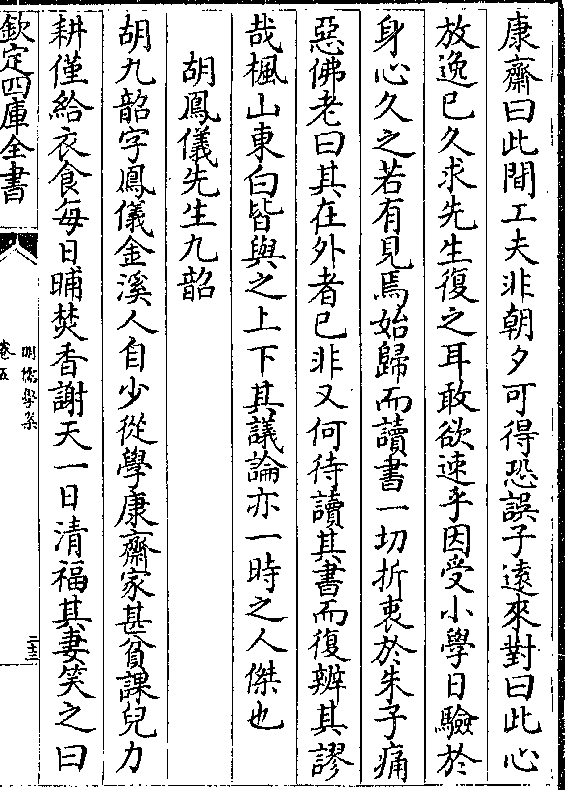 康齋曰此間工夫非朝夕可得恐誤子遠來對曰此心
放逸已久求先生復之耳敢欲速乎因受小學日驗於
身心久之若有見焉始歸而讀書一切折衷於朱子痛
惡佛老曰其在外者已非又何待讀其書而復辨其謬
哉楓山東白皆與之上下其議論亦一時之人傑也
胡鳳儀先生九韶
胡九韶字鳳儀金溪人自少從學康齋家甚貧課兒力
耕僅給衣食每日晡焚香謝天一日清福其妻笑之曰
欽定四庫全書
明儒學案
卷五
二十三